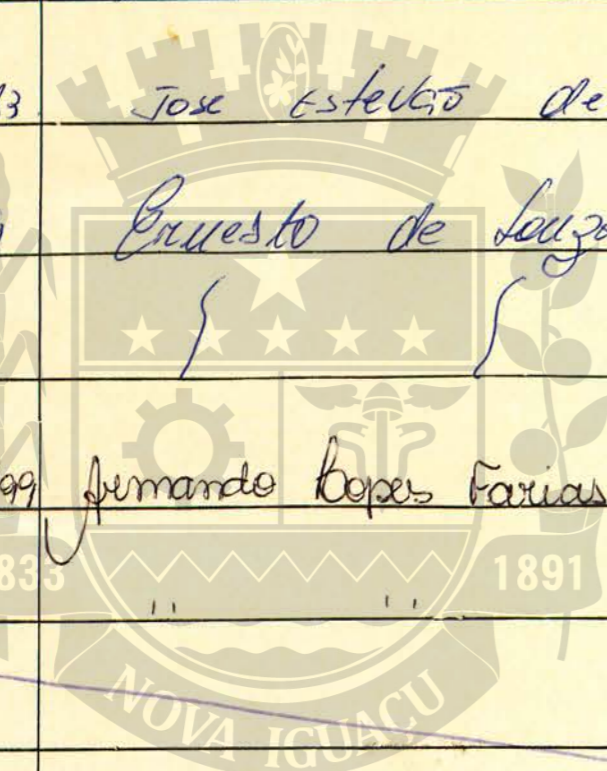 13 Jose Estevão de
Ernesto de Souza
99 Armando Lopes Farias
833 1891
" "
NOVA IGUAÇU